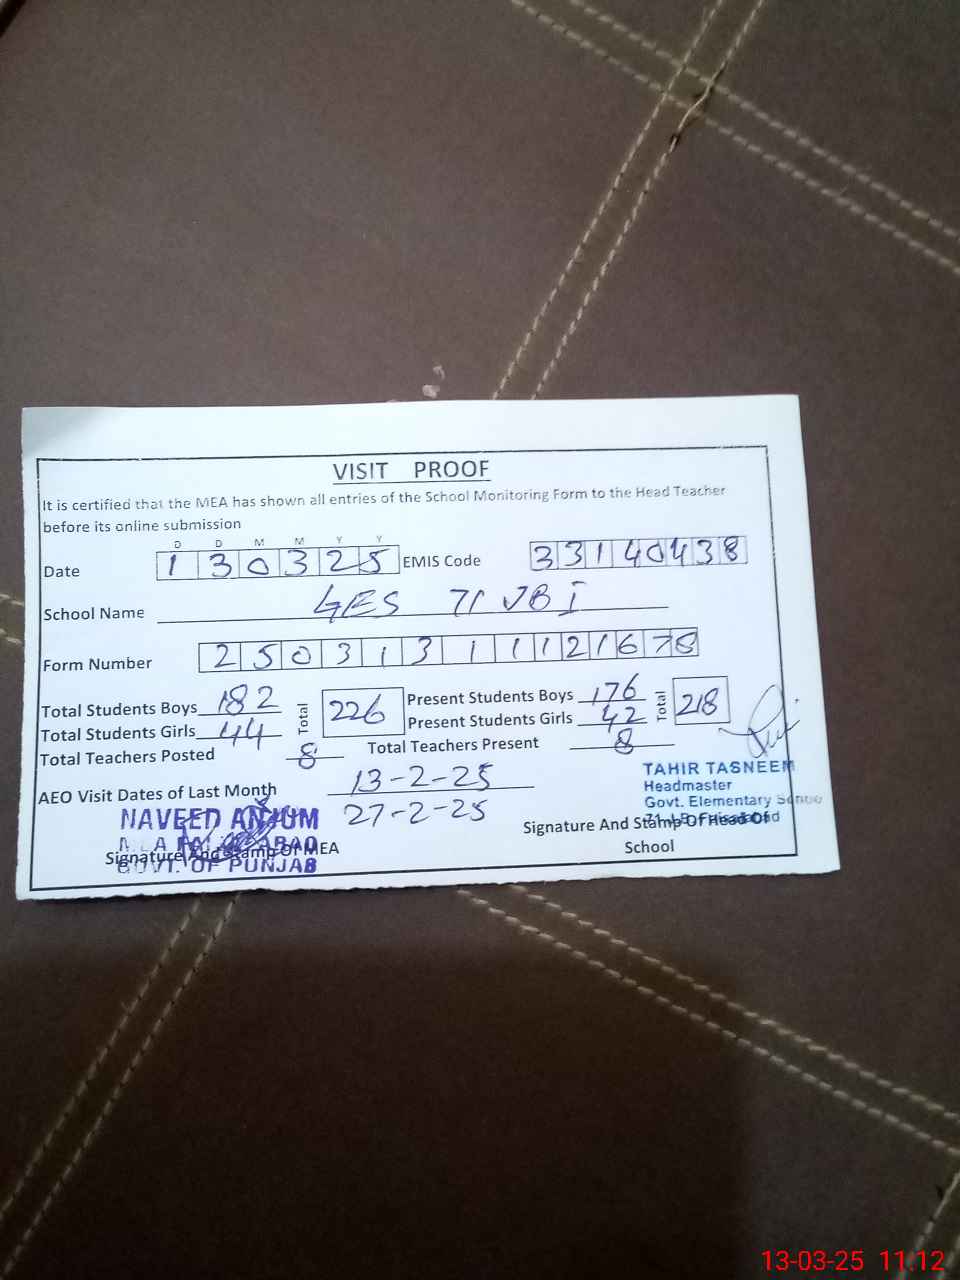 VISIT PROOF
It is certified that the MEA has shown all entries of the School Monitoring Form to the Head Teacher
before its online submission
D D M M Y Y
Date 1 3 0 3 2 5 EMIS Code 3 3 1 4 0 4 3 8
School Name GES 71 JB I
Form Number 2 5 0 3 1 3 1 1 1 2 1 6 7 8
Total Students Boys 182 Total 226 Present Students Boys 176 Total 218
Total Students Girls 44 Present Students Girls 42
Total Teachers Posted 8 Total Teachers Present 8
AEO Visit Dates of Last Month 13-2-25
27-2-25
TAHIR TASNEEM
Headmaster
Govt. Elementary School
Signature And Stamp Of Head Of
School
NAVEED ANJUM
Signature And Stamp Of MEA
GOVT. OF PUNJAB
13-03-25 11:12